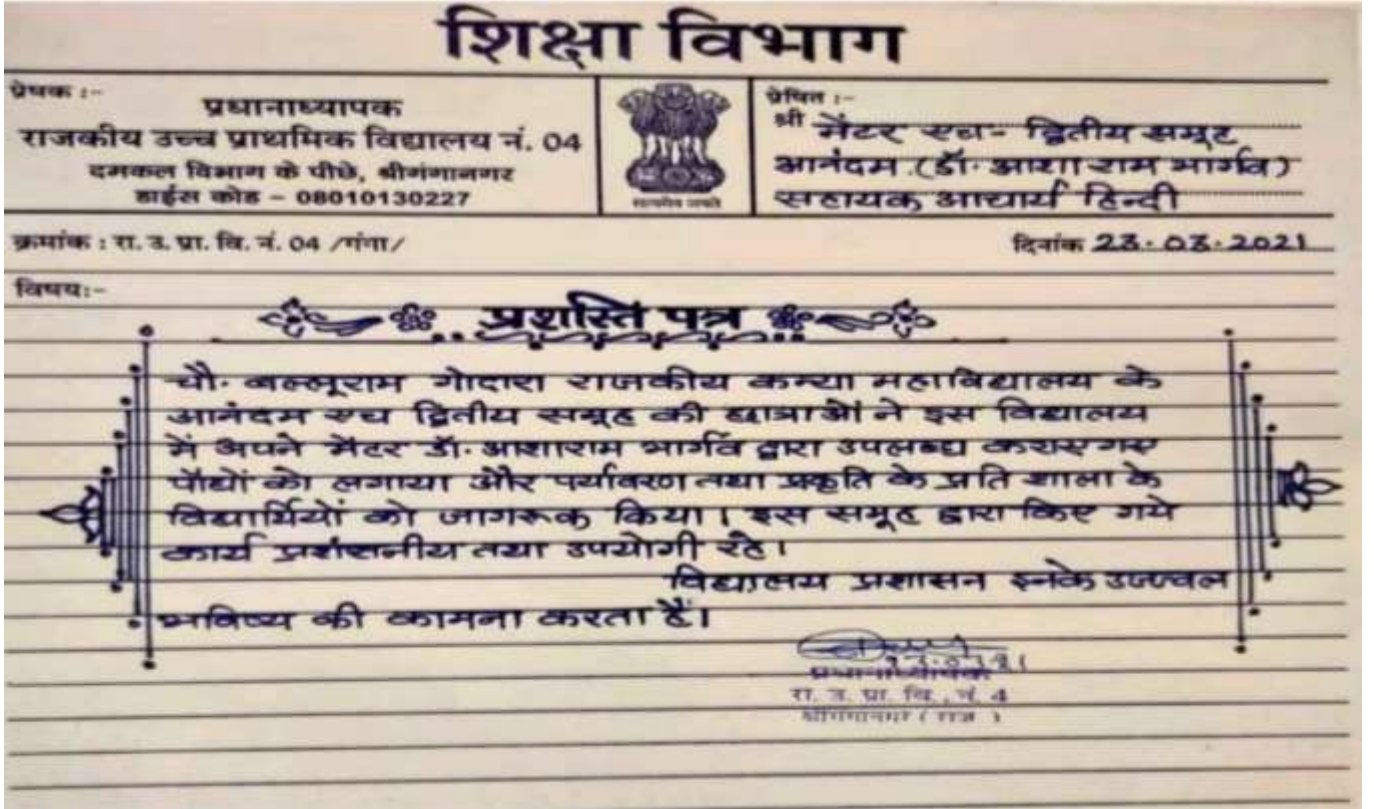 शिक्षा विभाग
प्रेषक :-
प्रधानाध्यापक
राजकीय उच्च प्राथमिक विद्यालय नं. 04
दमकल विभाग के पीछे, श्रीगंगानगर
डाईस कोड – 08010130227
सत्यमेव जयते
प्रेषित :-
श्री मेंटर एच- द्वितीय समूह
आनंदम (डॉ. आशा राम भार्गव)
सहायक आचार्य हिन्दी
क्रमांक : रा. उ. प्रा. वि. नं. 04 /गंगा/
दिनांक 23.03.2021
विषय:-
प्रशस्ति पत्र
चौ. बल्लूराम गोदारा राजकीय कन्या महाविद्यालय के
आनंदम एच द्वितीय समूह की छात्राओं ने इस विद्यालय
में अपने मेंटर डॉ. आशाराम भार्गव द्वारा उपलब्ध कराए गए
पौधों को लगाया और पर्यावरण तथा प्रकृति के प्रति शाला के
विद्यार्थियों को जागरूक किया। इस समूह द्वारा किए गये
कार्य प्रशंसनीय तथा उपयोगी रहे।
विद्यालय प्रशासन इनके उज्ज्वल
भविष्य की कामना करता हैं।
प्रधानाध्यापक
रा. उ. प्रा. वि., नं. 4
श्रीगंगानगर ( राज )